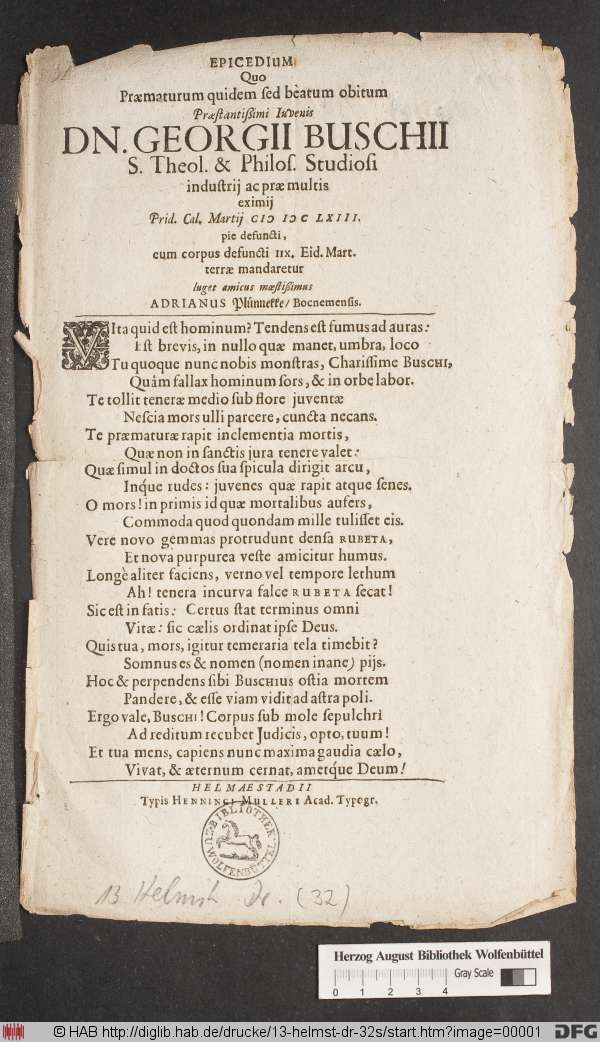 EPICEDIUM
Quo
Præmaturum quidem sed beatum obitum
Præstantißimi Iuvenis
DN. GEORGII BUSCHII
S. Theol. & Philos. Studiosi
industrij ac præ multis
eximij
Prid. Cal. Martij CIↃ IↃC LXIII.
pie defuncti,
cum corpus defuncti IIX. Eid. Mart.
terræ mandaretur
luget amicus mœstißimus
ADRIANUS Plünnekke/ Bocnemensis.
VIta quid est hominum? Tendens est fumus ad auras:
Est brevis, in nullo quæ manet, umbra, loco
Tu quoque nunc nobis monstras, Charissime BUSCHI,
Quàm fallax hominum sors, & in orbe labor.
Te tollit teneræ medio sub flore juventæ
Nescia mors ulli parcere, cuncta necans.
Te præmaturæ rapit inclementia mortis,
Quæ non in sanctis jura tenere valet:
Quæ simul in doctos sua spicula dirigit arcu,
Inq́ue rudes: juvenes quæ rapit atque senes.
O mors! in primis id quæ mortalibus aufers,
Commoda quod quondam mille tulisset eis.
Vere novo gemmas protrudunt densa RUBETA,
Et nova purpurea veste amicitur humus.
Longè aliter faciens, verno vel tempore lethum
Ah! tenera incurva falce RUBETA secat!
Sic est in fatis: Certus stat terminus omni
Vitæ: sic cælis ordinat ipse Deus.
Quis tua, mors, igitur temeraria tela timebit?
Somnus es & nomen (nomen inane) pijs.
Hoc & perpendens sibi BUSCHIUS ostia mortem
Pandere, & esse viam vidit ad astra poli.
Ergo vale, BUSCHI! Corpus sub mole sepulchri
Ad reditum recubet Judicis, opto, tuum!
Et tua mens, capiens nunc maxima gaudia cælo,
Vivat, & æternum cernat, ametq́ue Deum!
HELMAESTADII
Typis HENNINGI MULLERI Acad. Typogr.
BIBLIOTHEK
WOLFENBÜTTEL
13 Helmst Dr. (32)
Herzog August Bibliothek Wolfenbüttel
Gray Scale
0 1 2 3 4
© HAB http://diglib.hab.de/drucke/13-helmst-dr-32s/start.htm?image=00001
DFG